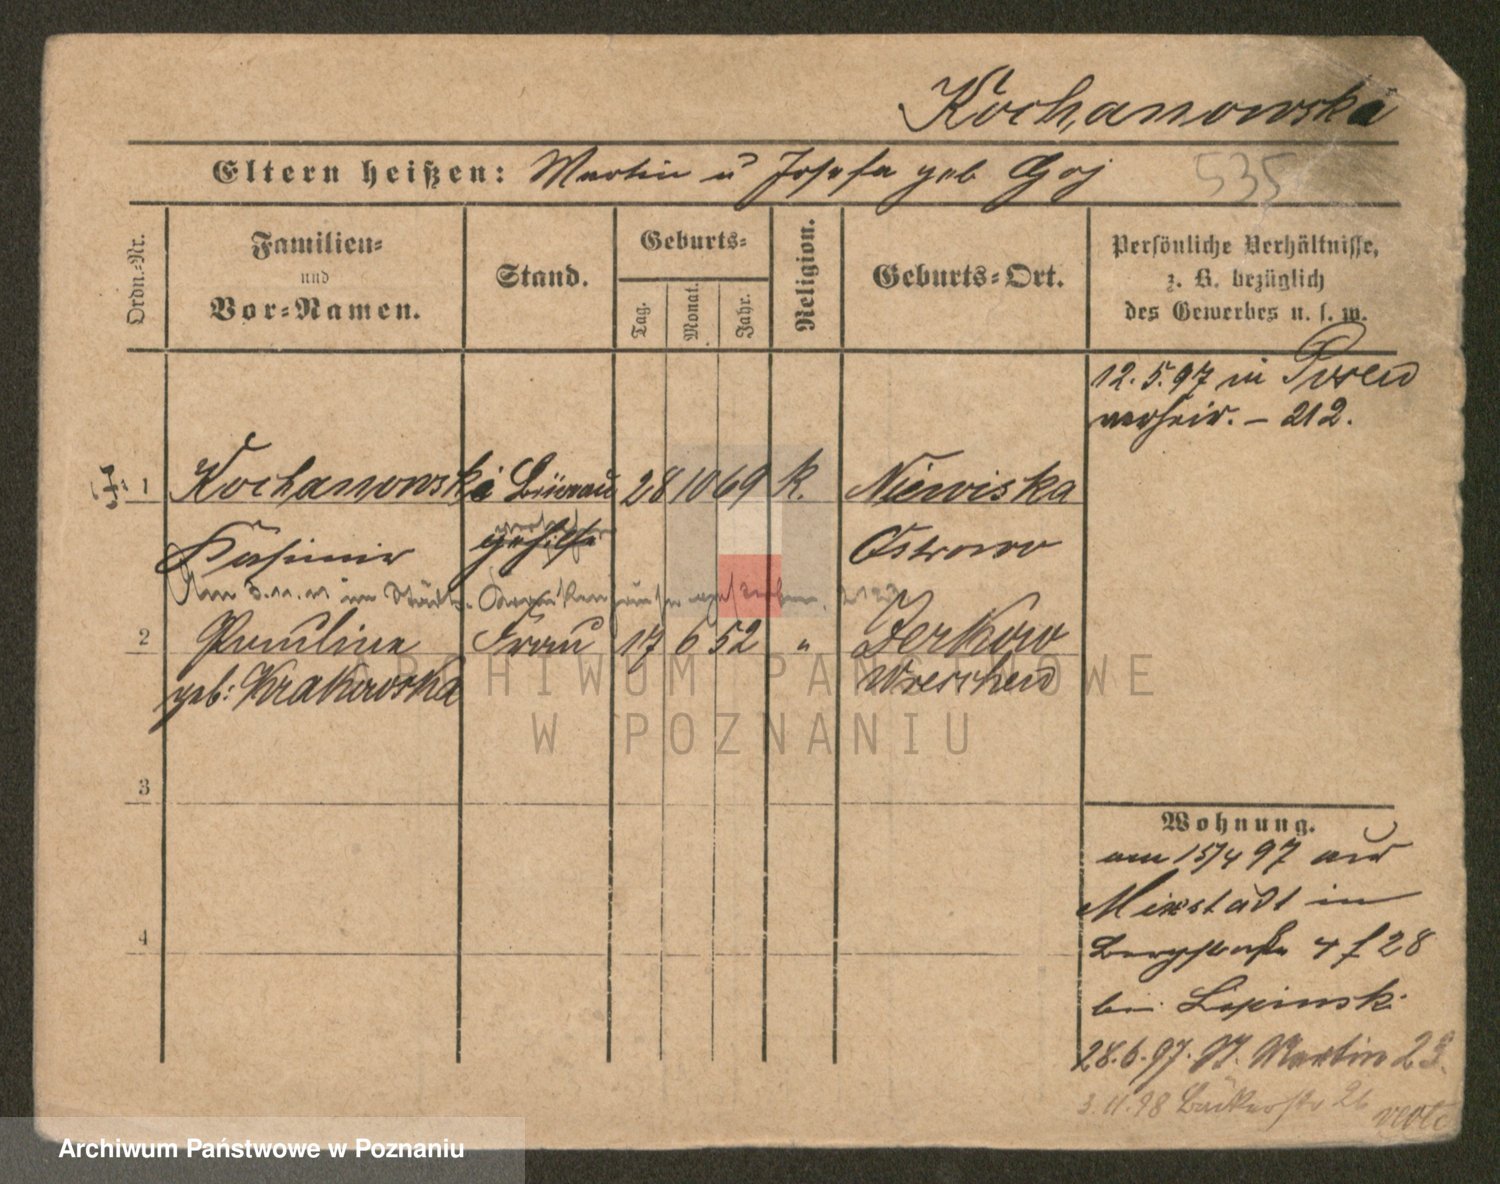 Kochanowski
Eltern heißen: Martin u Josefa geb Goj
535
Ordn.-Nr.
Familien-
und
Vor-Namen.
Stand.
Geburts-
Tag.
Monat.
Jahr.
Religion.
Geburts-Ort.
Persönliche Verhältnisse,
z. B. bezüglich
des Gewerbes u. s. w.
12.5.97 in Posen
verheir. - 212.
1 Kochanowski Büreau 28 10 69 K. Niewiska
Kasimir gehilfe Ostrowo
Am im Städt. Krankenhause gestorben.
2 Pauline Frau 17 6 52 " Zerkow
geb: Krakowska Wreschen
3
4
Wohnung.
am 15/4 97 aus
Mixstadt in
Bergstraße 4 f 28
bei Lipinski
28.6.97. St. Martin 23.
3.11.98 Bäckerstr 26
ARCHIWUM PAŃSTWOWE
W POZNANIU
Archiwum Państwowe w Poznaniu